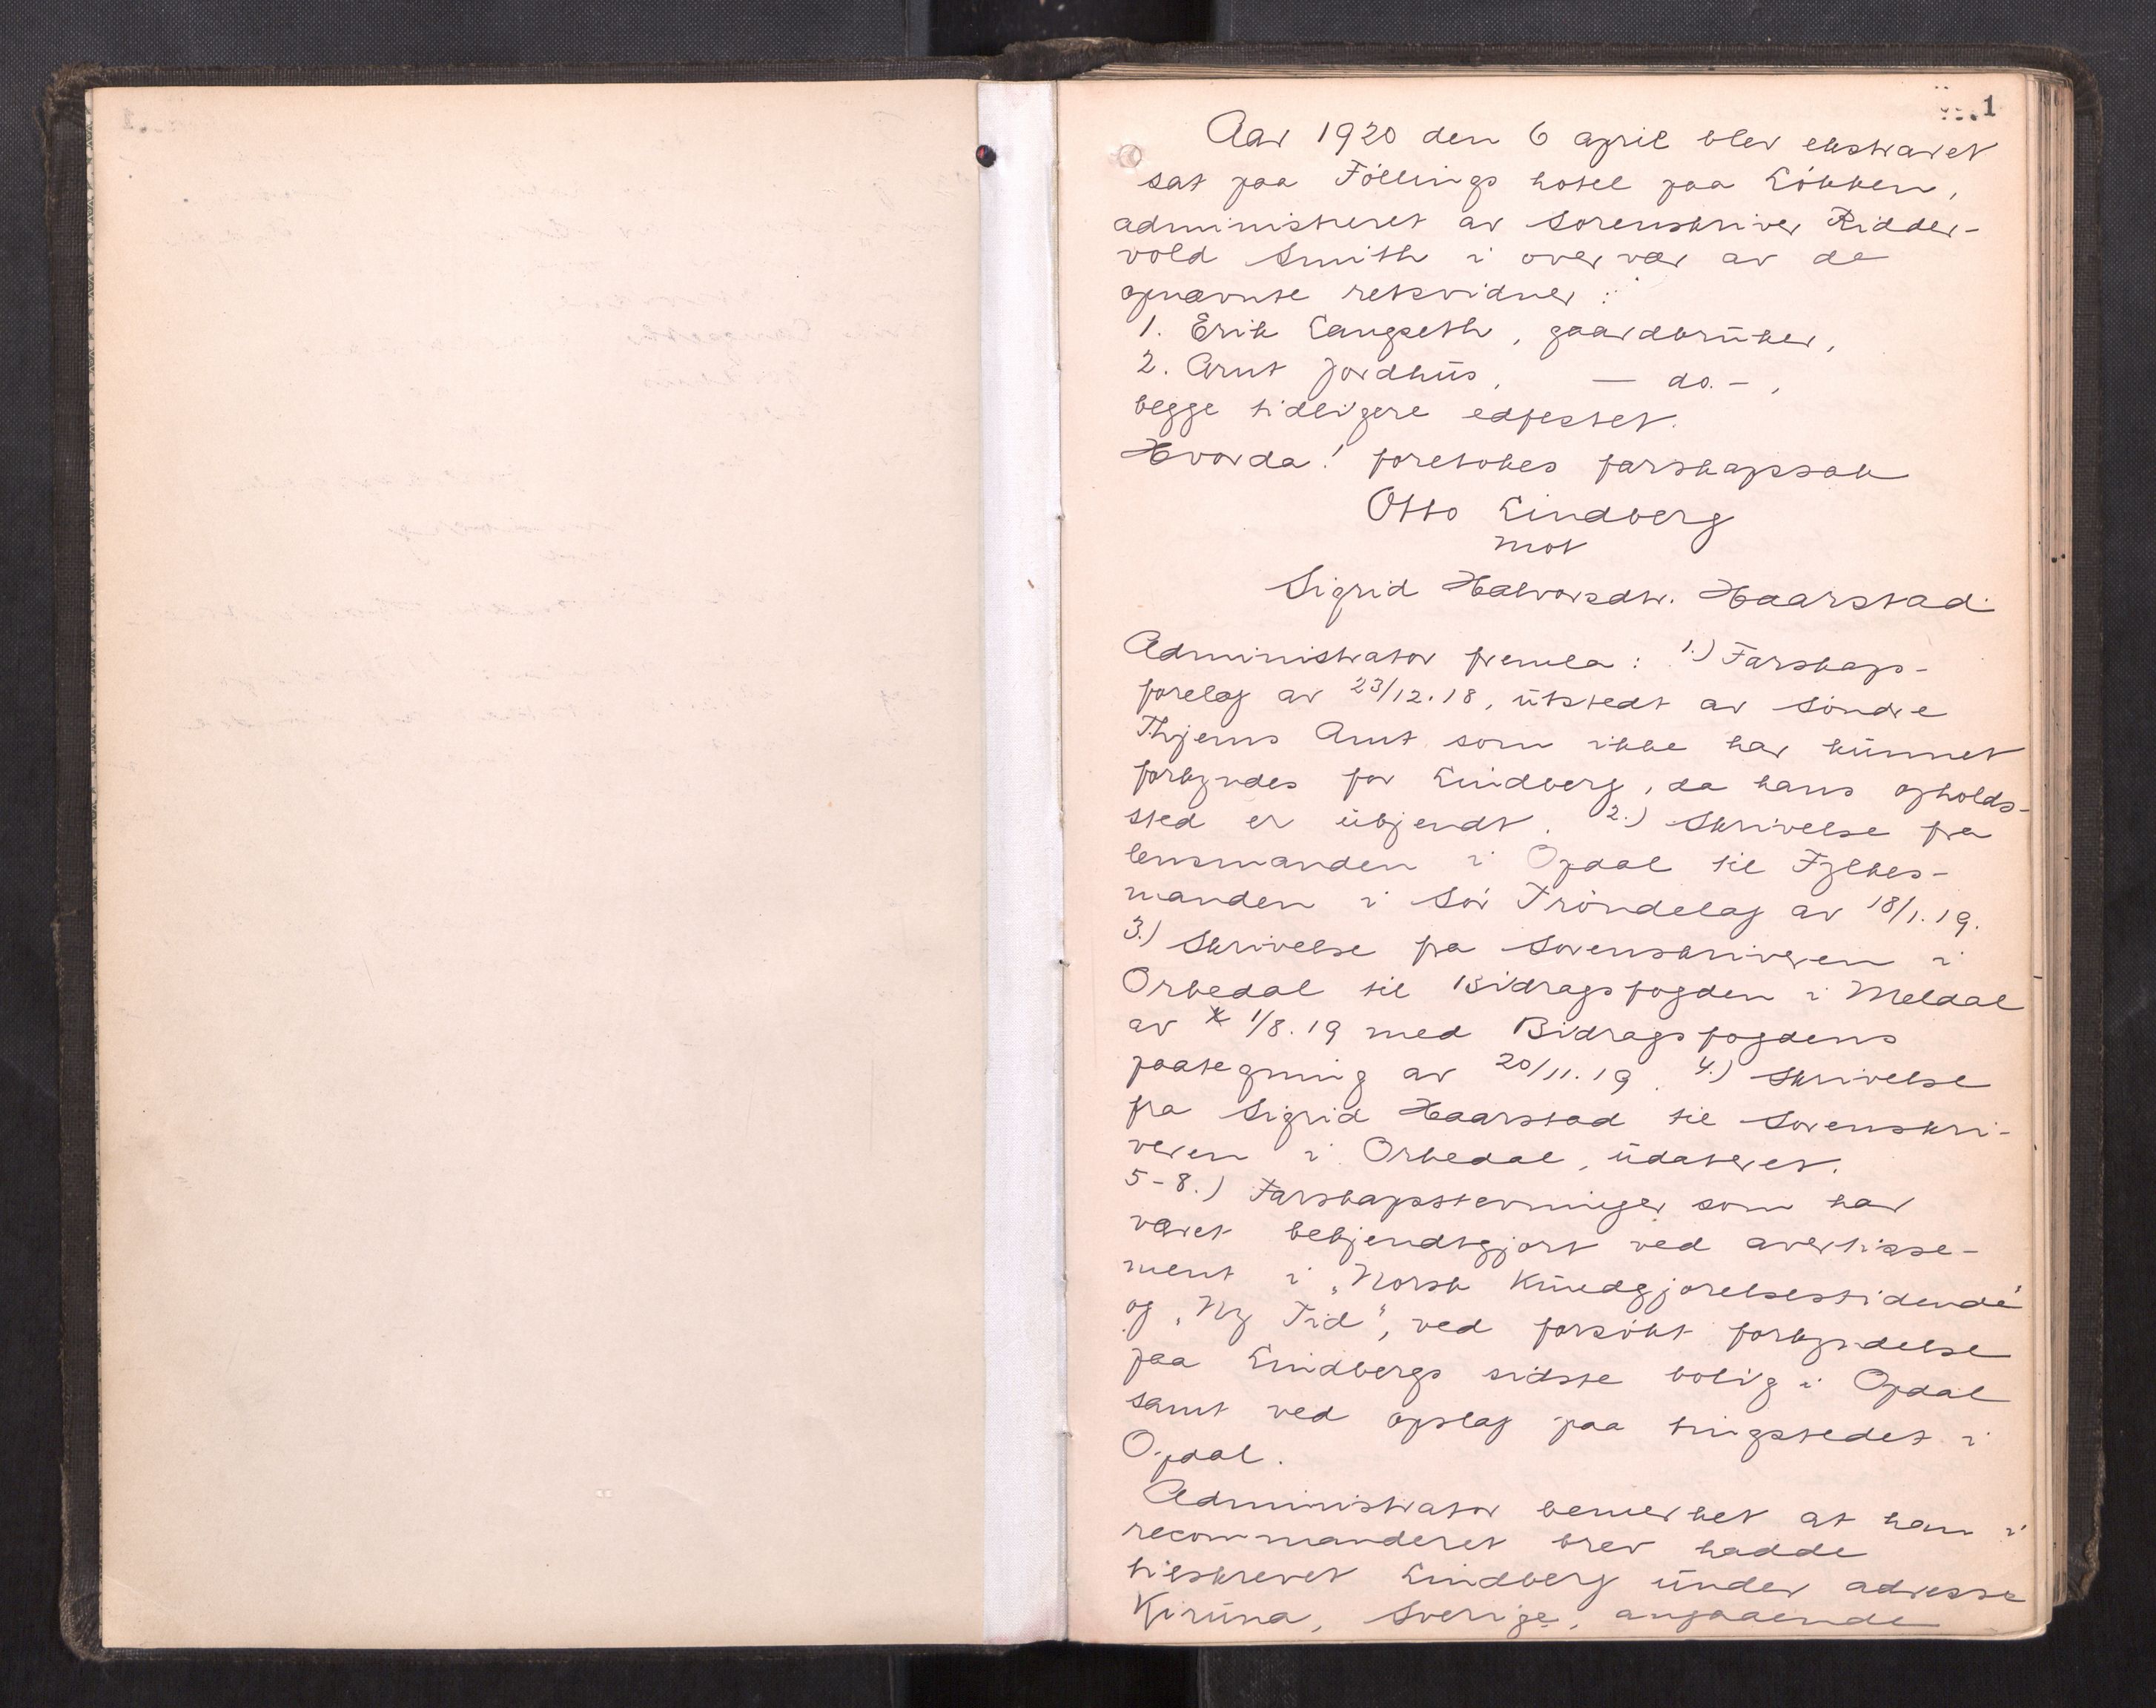 1
Aar 1920 den 6 april blev ekstraret
sat paa Föllings hotel paa Lökken,
administreret av sorenskriver Ridder-
vold Smith i overvær av de
opnævnte retsvidner:
1. Erik Langseth, gaardbruker,
2. Arnt Jordhus, — do. —,
begge tidligere edfestet.
Hvorda! foretokes farskapssak
Otto Lindberg
mot
Sigrid Halvorsdtr. Haarstad
Administrator fremla: 1.) Farskaps-
forelæg av 23/12.18, utstedt av Söndre
Thjems Amt som ikke har kunnet
forkyndes for Lindberg, da hans opholds-
sted er ukjendt. 2.) Skrivelse fra
lensmanden i Opdal til Fylkes-
manden i Sör Tröndelag av 18/1.19.
3.) Skrivelse fra Sorenskriveren i
Orkedal til Bidragsfogden i Meldal
av 1/8.19 med Bidragsfogdens
paategning av 20/11.19. 4.) Skrivelse
fra Sigrid Haarstad til Sorenskri-
veren i Orkedal, udateret.
5-8.) Farskapsstevninger som har
været bekjendtgjort ved avertisse-
ment i „Norsk Kundgjorelsestidende"
og „Ny Tid", ved forsökt forkyndelse
paa Lindbergs sidste bolig i Opdal
samt ved opslag paa tingstedet i
Opdal.
Administrator bemerket at han i
recommanderet brev hadde
tilskrevet Lindberg under adresse
Kiruna, Sverige, angaaende